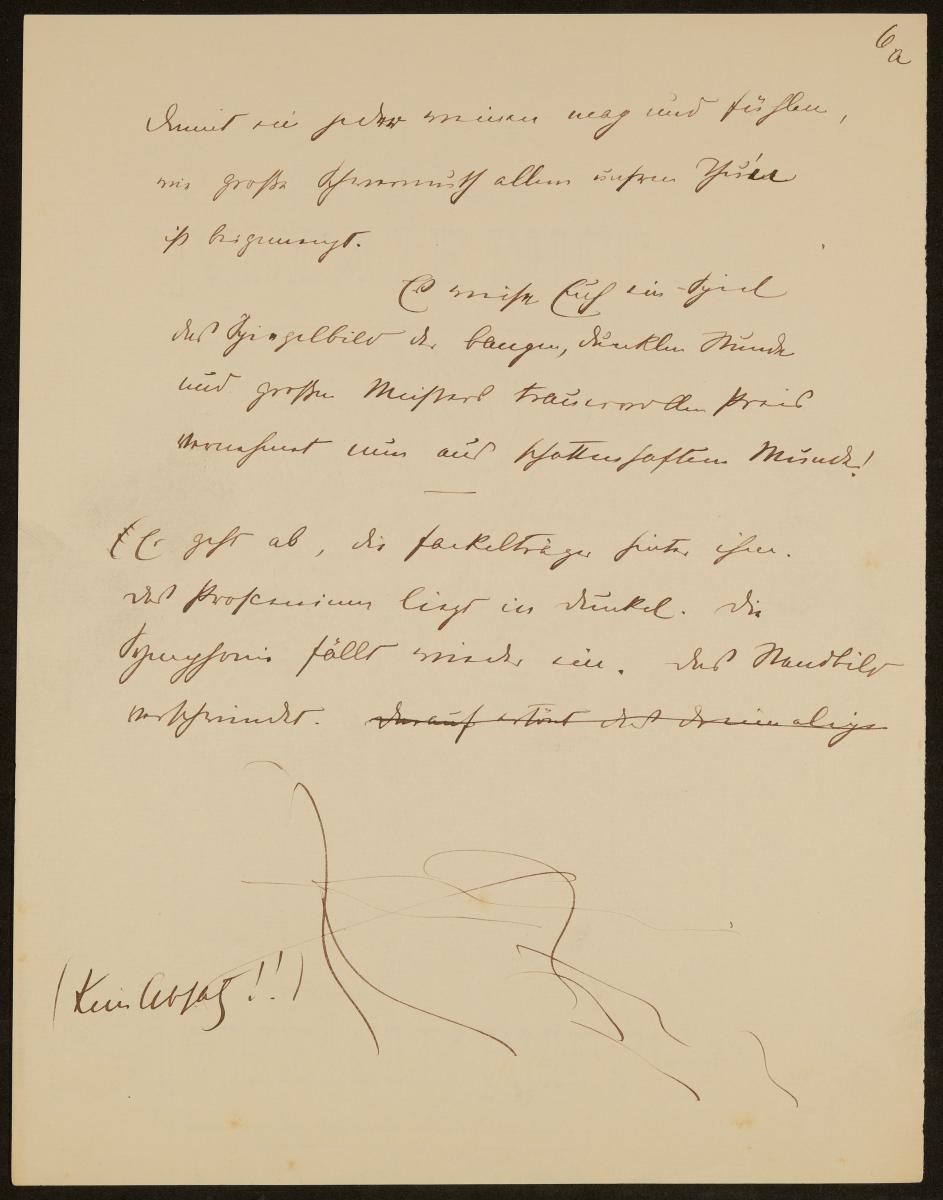 6a
damit sie jeder weinen mag und fühlen,
wie große Schwermuth allem unsren Thun
ist beigemengt.
Es weise Euch ein Spiel
das Spiegelbild der bangen, dunklen Stunde
und großen Meisters trauervollen Preis
vernehmet nun aus schattenhaftem Munde!
(Er geht ab, die Fackelträger hinter ihm.
Das Proscenium liegt in Dunkel. Die
Symphonie fällt wieder ein. Das Standbild
verschwindet. Darauf ertönt das dreimalige
(Kein Absatz!!)